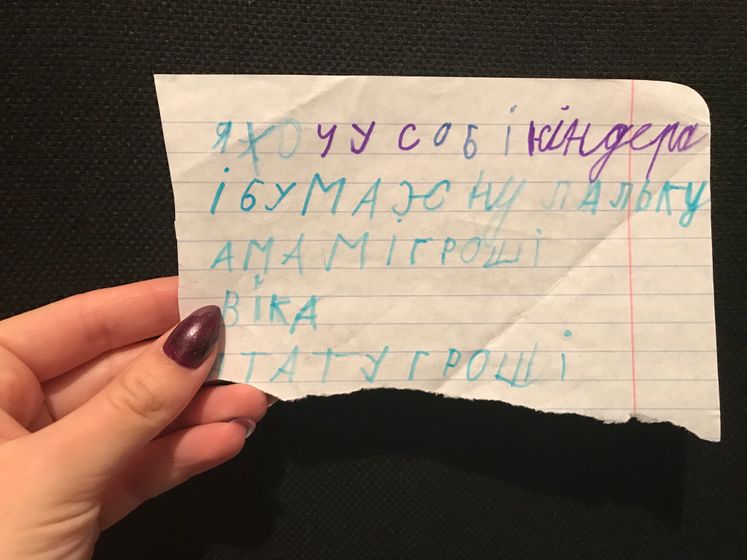 Я ХОЧУ СОБІ кіндера
І БУМАЖНУ ЛАЛЬКУ
А МАМІ ГРОШІ
ВІКА
А ТАТУ ГРОШІ